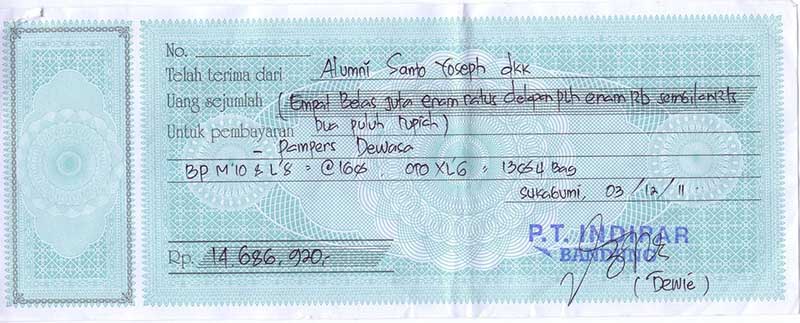 No.
Telah terima dari Alumni Santo Yoseph dkk
Uang sejumlah (Empat Belas juta enam ratus delapan plh enam rb sembilan rts
Untuk pembayaran Dua puluh rupiah)
- Pampers Dewasa
BP M'10 & L'8 = @ OTO XL'6 = Bag
Sukabumi, 03/12/11
P.T. INDIRAR
BANDUNG
Rp. 14.686.920,-
(Dewie)